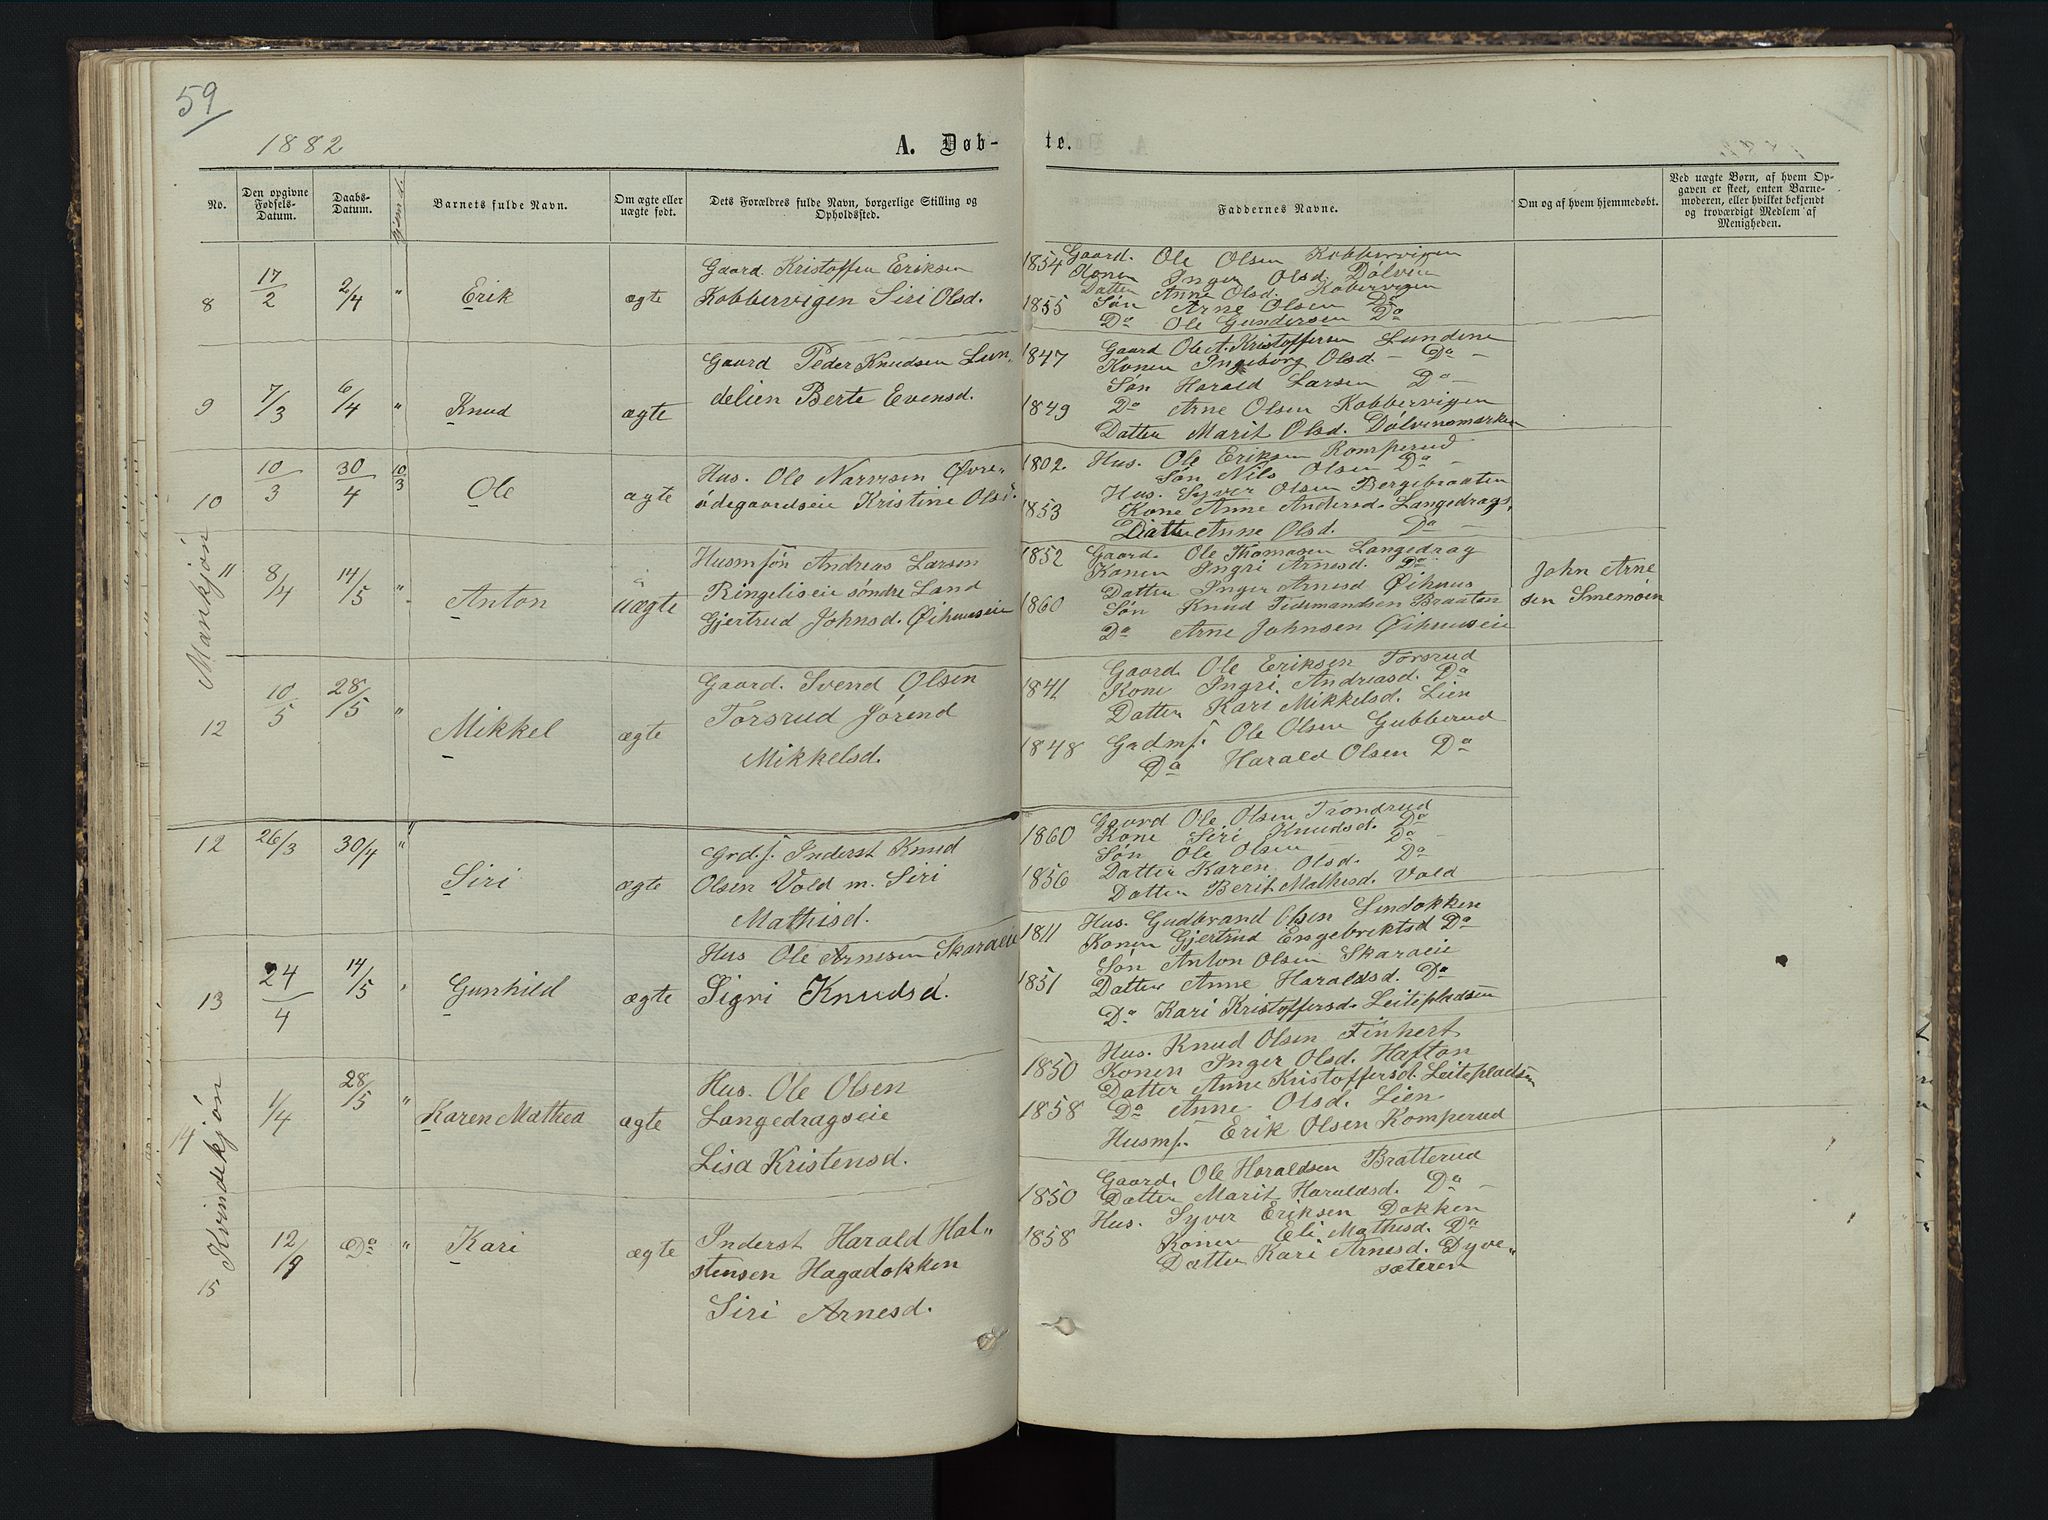 59
1882
A. Døb-
te.
No.
Den opgivne Fødsels-Datum.
Daabs-Datum.
Barnets fulde Navn.
Om ægte eller uægte født.
Dets Forældres fulde Navn, borgerlige Stilling og Opholdssted.
Faddernes Navne.
Om og af hvem hjemmedøbt.
Ved uægte Børn, af hvem Op-
gaven er skeet, enten Barne-
moderen, eller hvilket bekjendt
og troværdigt Medlem af
Menigheden.
Mankjøn
8 17/2 2/4 " Erik ægte
Gaard. Kristoffer Eriksen
Kobbervigen Siri Olsd.
1854
1855
Gaard. Ole Olsen Kobbervigen
Konen Inger Olsd. Dølven
Datter Anne Olsd. Kobervigen
Søn Arne Olsen Do
Do Ole Gundersen Do
9 7/3 6/4 " Knud ægte
Gaard Peder Knudsen Lun-
delien Berte Evensd.
1847
1849
Gaard Ole A. Kristoffersen Lundene
Konen Ingeborg Olsd - Do -
Søn Harald Larsen Do -
Do Arne Olsen Kobbervigen
Datter Marit Olsd. Dølvenomarken
10 10/3 30/4 10/3 Ole ægte
Hus. Ole Narvesen Øvre-
ødegaardseie Kristine Olsd.
1802
1853
Hus. Ole Eriksen Komperud
Søn Nils Olsen Do -
Hus. Syver Olsen Bergebraaten
Kone Anne Andersd. Langedrag
Datter Anne Olsd. Do -
11 8/4 14/5 " Anton uægte
Husmsøn Andreas Larsen
Ringeliseie søndre Land
Gjertrud Johnsd. Øihuuseie
1852
1860
Gaard. Ole Thomasen Langedrag
Konen Ingri Arnesd. Do
Datter Inger Arnesd Øihuus
Søn Knud Tidemandsen Braaten
Do Arne Johnsen Øihuuseie
John Arne
sen Smemoen
12 10/5 28/5 " Mikkel ægte
Gaard. Svend Olsen
Torsrud Jørend
Mikkelsd.
1841
1848
Gaard Ole Eriksen Torsrud
Kone Ingri Andreasd. Do
Datter Kari Mikkelsd. Lien
Grdmf. Ole Olsen Gubberud
Do Harald Olsen Do
Kvindekjøn
12 26/3 30/4 " Siri ægte
Grd.f. Inderst Knud
Olsen Vold m. Siri
Mathisd.
1860
1856
Gaard Ole Olsen Trondrud
Kone Siri Knudsd. Do
Søn Ole Olsen - Do -
Datter Karen Olsd. Do
Datter Berit Mathisd. Vold
13 24/4 14/5 Gunhild ægte
Hus Ole Arnesen Skaraeie
Sigri Knudsd.
1811
1851
Hus. Gudbrand Olsen Lindokken
Konen Gjertrud Engebriktsd Do
Søn Anton Olsen Skaraeie
Datter Anne Haraldsd. Do
Do Kari Kristoffersd. Leitepladsen
14 1/4 28/5 " Karen Mathea ægte
Hus. Ole Olsen
Langedragseie
Lisa Kristensd.
1850
1858
Hus. Knud Olsen Finhert
Konen Inger Olsd. Hafton
Datter Anne Kristoffersd. Leitepladsen
Do Anne Olsd. Lien
Husmf. Erik Olsen Komperud
15 12/9 Do " Kari ægte
Inderst Harald Hal-
stensen Hagadokken
Siri Arnesd.
1850
1858
Gaard. Ole Haraldsen Bratterud
Datter Marit Haraldsd. Do -
Hus. Syver Eriksen Dokken
Konen Eli Mathisd. Do
Datter Kari Arnesd. Dyve-
sæteren